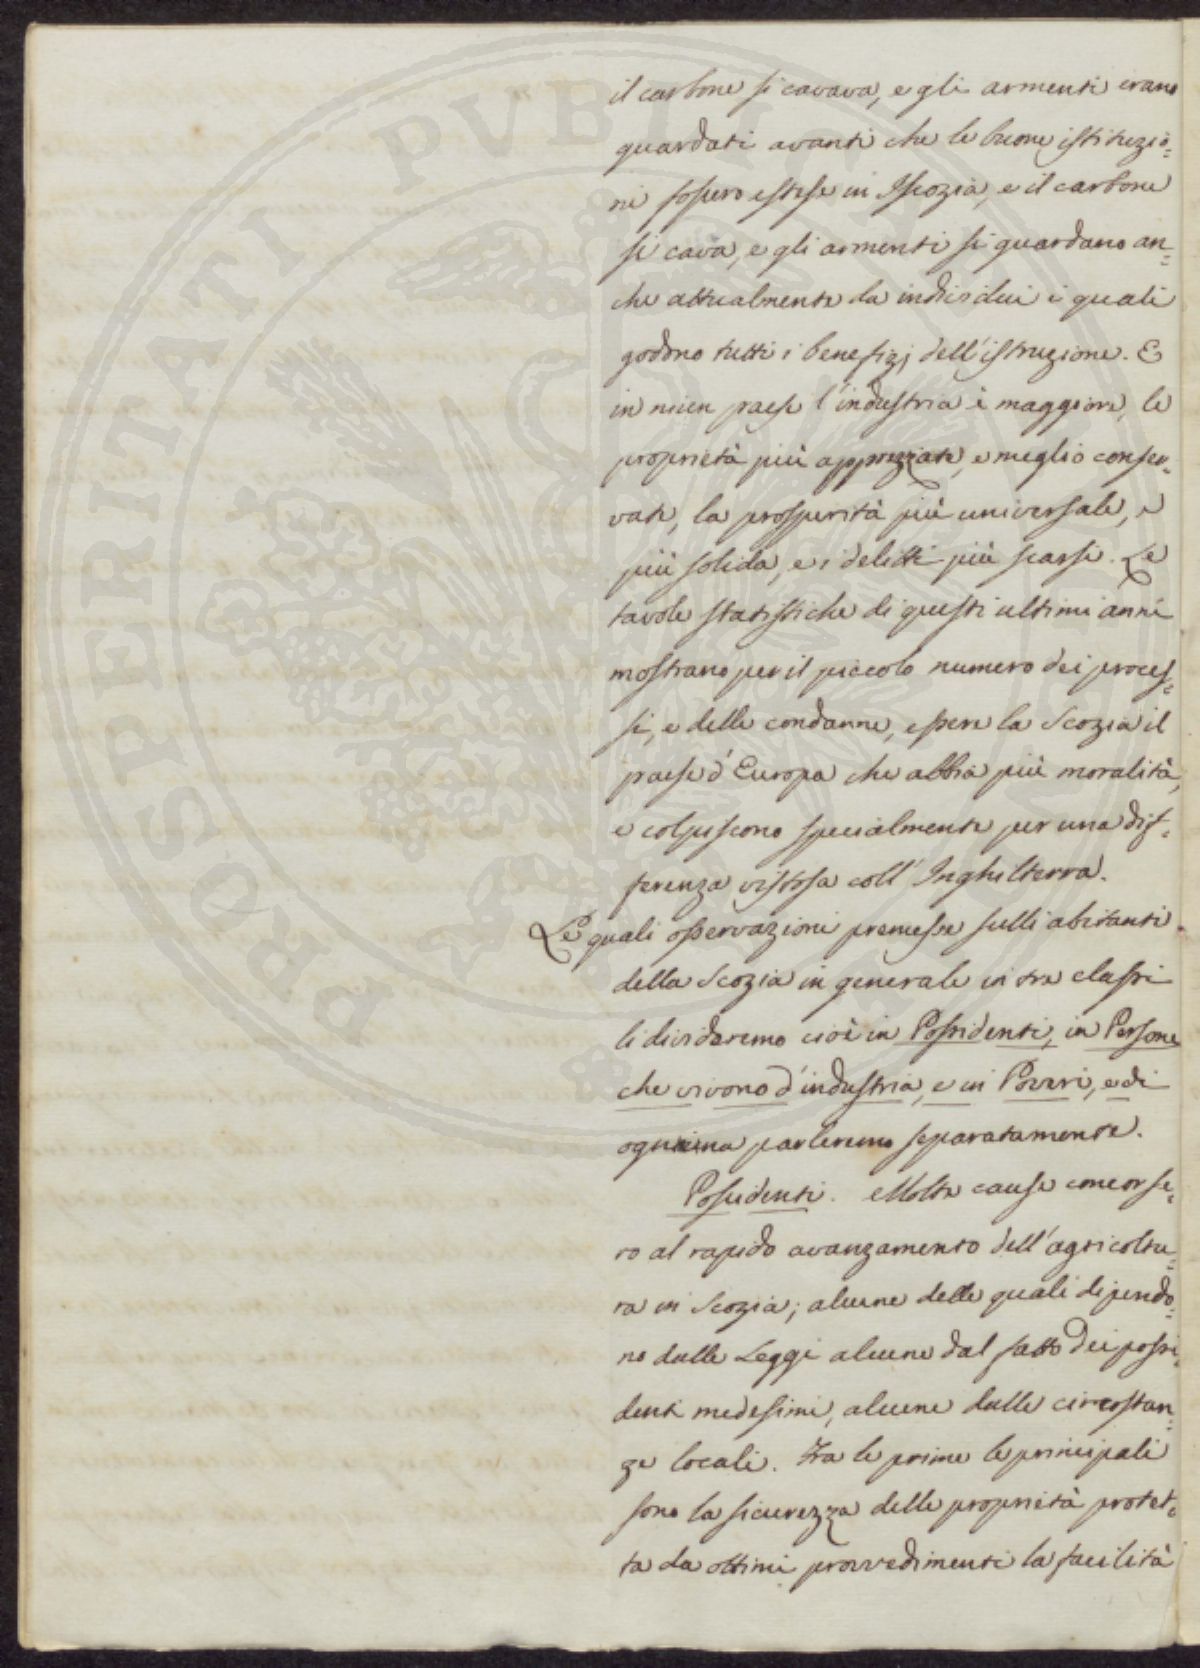 il carbone si cavava, e gli armenti erano
guardati avanti che le buone istituzio=
ni fossero estese in Iscozia, e il carbone
si cava, e gli armenti si guardano an=
che attualmente da individui i quali
godono tutti i benefizj dell'istruzione. E
in niun paese l'industria è maggiore, le
proprietà più apprezzate, e meglio conser=
vate, la prosperità più universale, e
più solida, e i delitti più scarsi. Le
tavole statistiche di questi ultimi anni
mostrano per il piccolo numero dei proces=
si, e delle condanne, essere la Scozia il
paese d'Europa che abbia più moralità,
e colpiscono specialmente per una dif=
ferenza vistosa coll'Inghilterra.
Le quali osservazioni premesse sulli abitanti
della Scozia in generale in tre classi
li divideremo cioè in Possidenti, in Persone
che vivono d'industria, e in Poveri, e di
ognuna parleremo separatamente.
Possidenti. Molte cause concorse=
ro al rapido avanzamento dell'agricoltu=
ra in Scozia; alcune delle quali dipendo=
no dalle Leggi alcune dal fatto dei possi=
denti medesimi, alcune dalle circostan=
ze locali. Fra le prime le principali
sono la sicurezza delle proprietà protet=
ta da ottimi provvedimenti la facilità
PROSPERITATI PVBLICAE